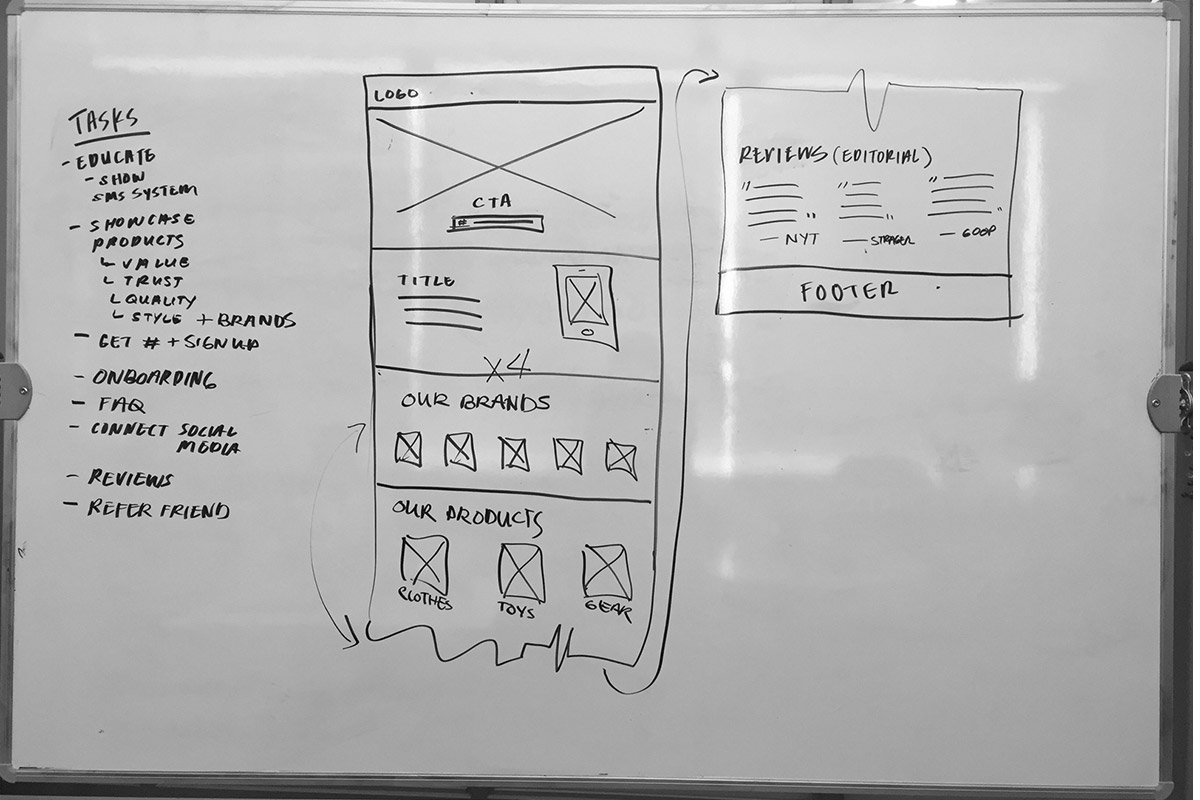 TASKS
- EDUCATE
- SHOW
SMS SYSTEM
- SHOWCASE
PRODUCTS
VALUE
TRUST
QUALITY
STYLE + BRANDS
- GET # + SIGN UP
- ONBOARDING
- FAQ
- CONNECT SOCIAL
MEDIA
- REVIEWS
- REFER FRIEND
LOGO
CTA
#
TITLE
X4
OUR BRANDS
OUR PRODUCTS
CLOTHES TOYS GEAR
REVIEWS (EDITORIAL)
" " "
" " "
— NYT — — GOOP
FOOTER